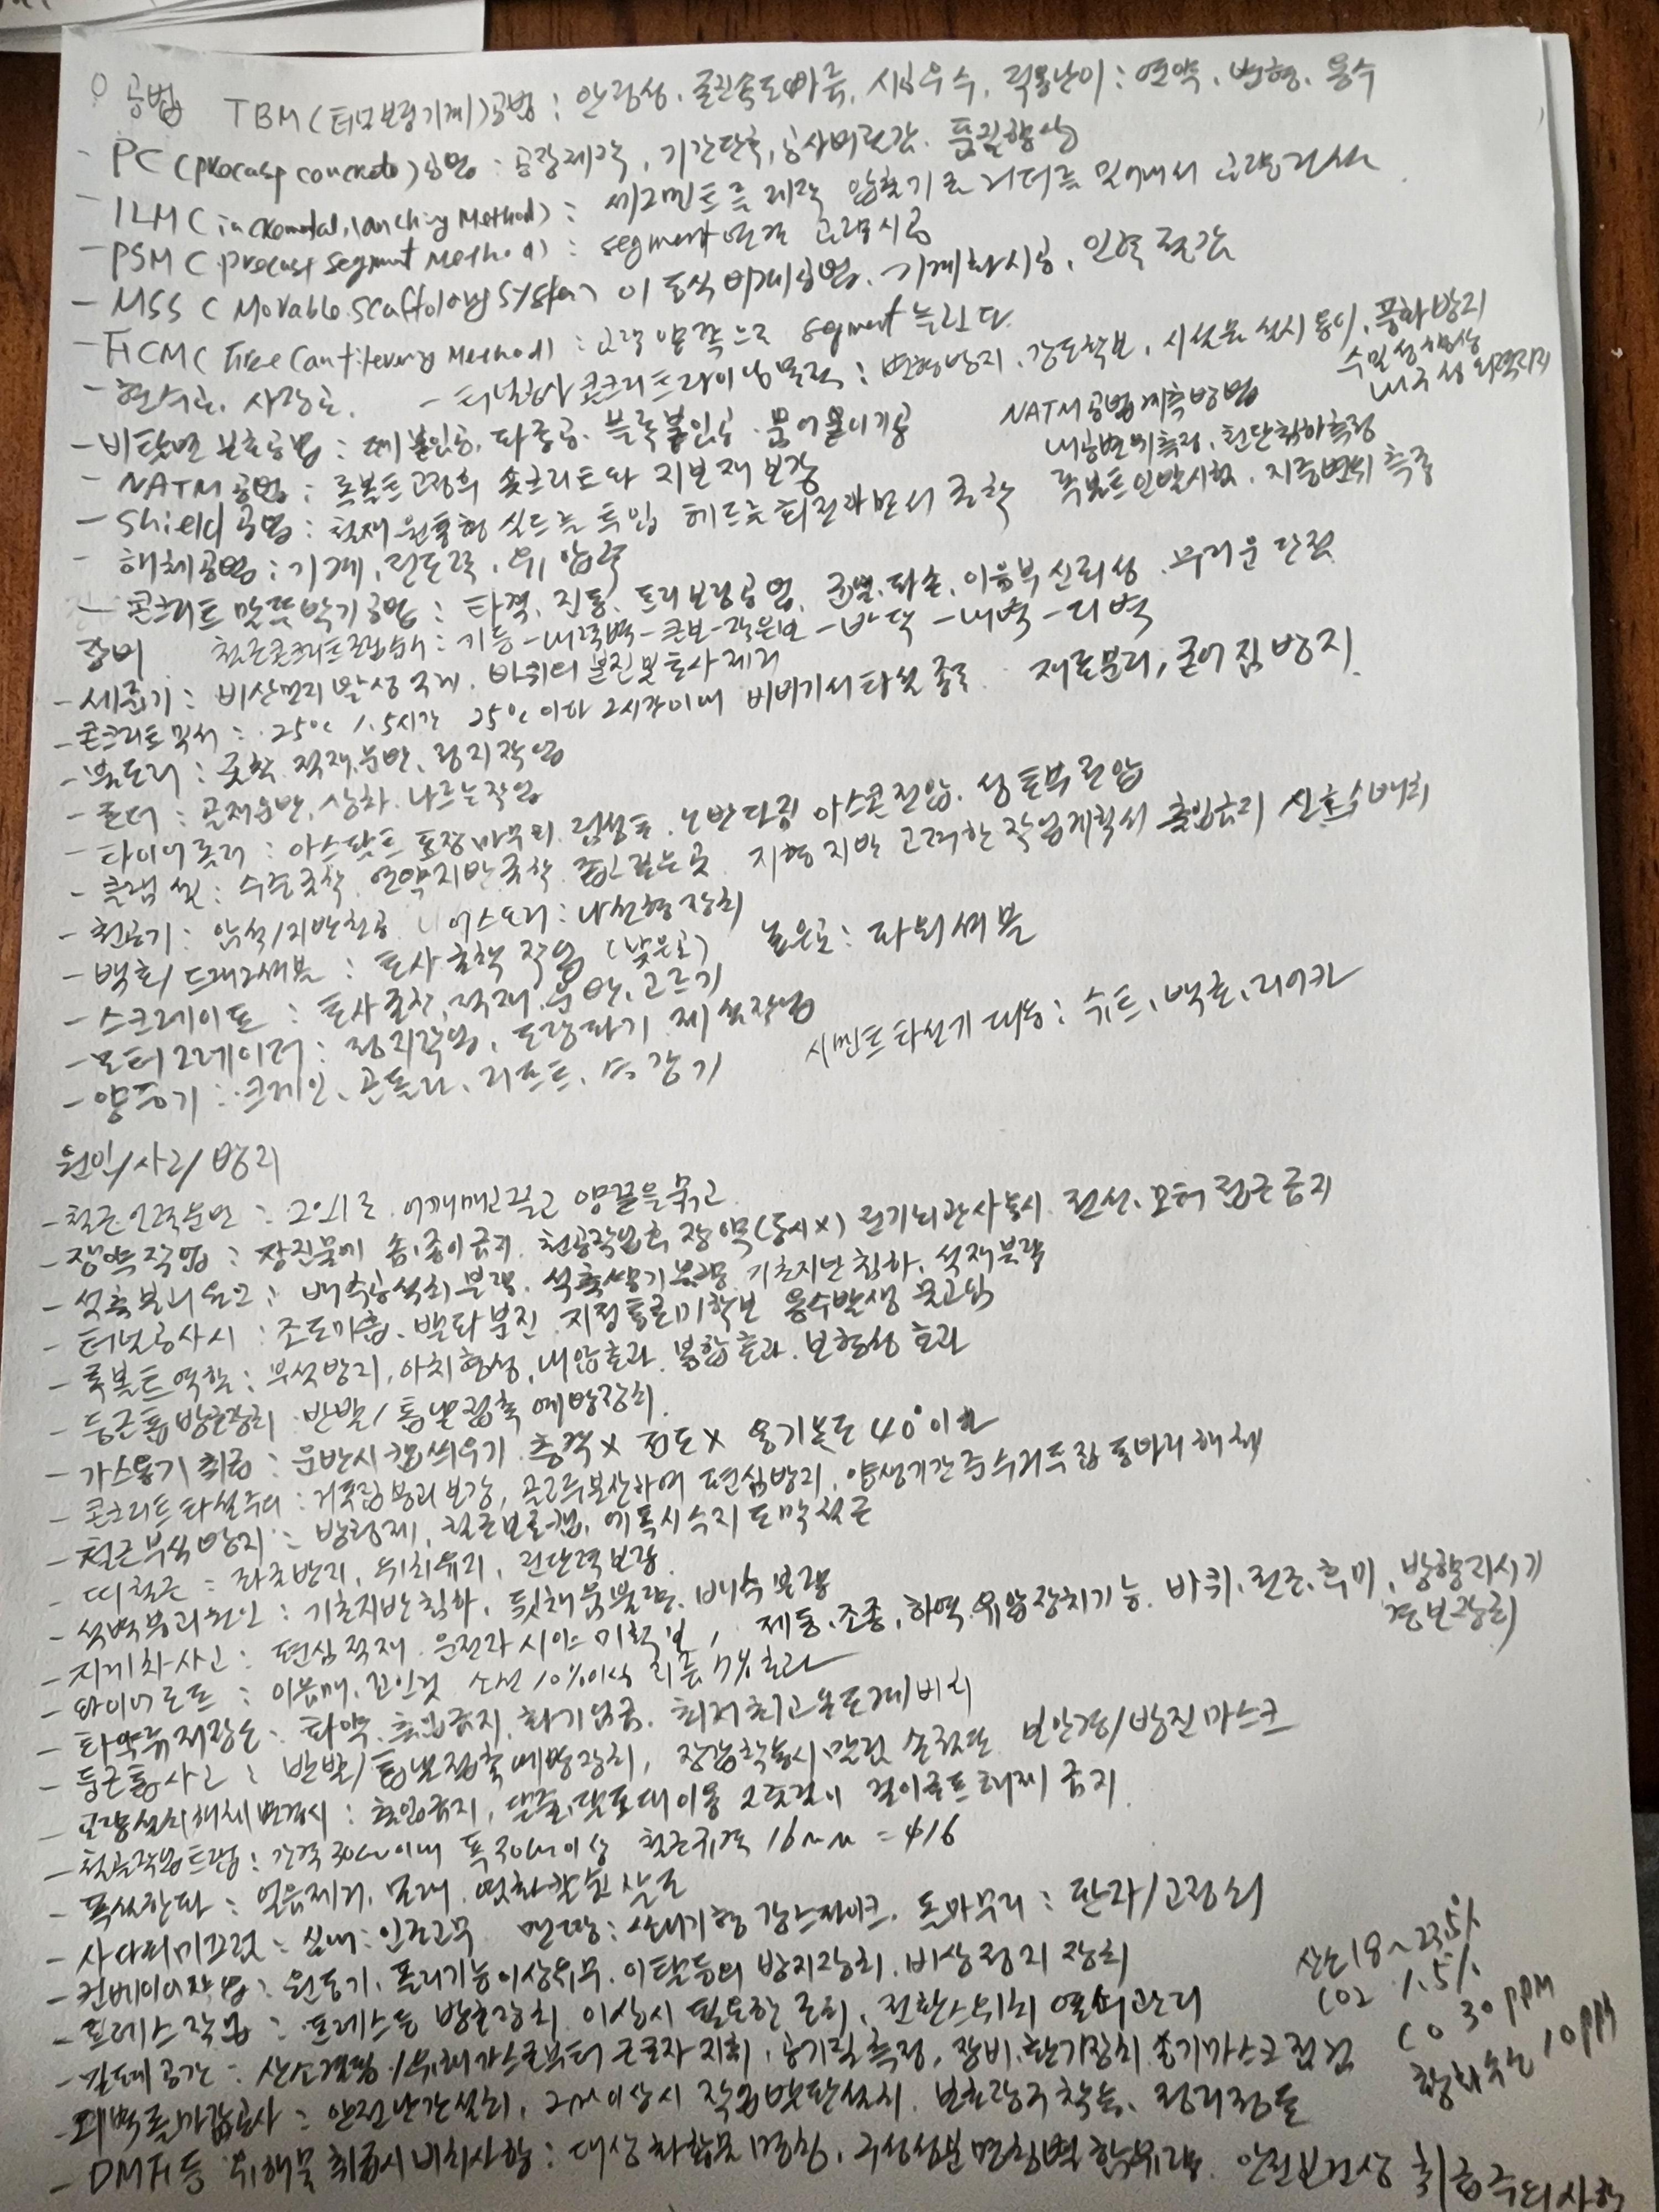 공법 TBM(터널보링기계)공법 : 안정성, 굴진속도빠름, 시공우수, 적용난이 : 연약, 변형, 용수
- PC (precasp concrete)공법 : 공장제작, 기간단축, 공사비절감, 품질향상
- ILM (incremental launching Method) : 세그먼트를 제작 압출기로 거더를 밀어내서 교량건설
- PSM (precast segment Method) : segment 연결 교량시공
- MSS (Movable Scaffolding System) 이동식비계공법, 기계화시공, 인력절감
- FCM (Free Cantilevering Method) : 교각 양쪽으로 segment 늘린다.
- 현수교, 사장교. - 터널공사 콘크리트라이닝목적 : 변형방지, 강도확보, 시설물 설치용이, 풍화방지
수밀성향상
내구성
- 비탈면 보호공법 : 떼붙임공, 파종공, 블록붙임공
NATM공법계측방법
내공변위측정, 천단침하측정
- NATM 공법 : 록볼트고정후 숏크리트와 지보재 보강
록볼트인발시험, 지중변위 측정
- Shield 공법 : 철재 원통형 실드를 투입 헤드를 회전하면서 굴착
- 해체공법 : 기계, 전도력, 유압력
- 콘크리트 말뚝박기공법 : 타격, 진동, 프리보링공법, 균열, 파손, 이음부신뢰성
장비 철근콘크리트조립순서 : 기둥-내력벽-큰보-작은보-바닥-내벽-외벽
- 세륜기 : 비산먼지 발생 억제, 바퀴의 분진 및 토사제거
- 콘크리트믹서 : 25℃ 1.5시간 25℃ 이하 2시간이내 비비기서 타설 종료 재료분리, 굳어짐 방지.
- 불도저 : 굴착, 적재, 운반, 정지작업
- 로더 : 골재운반, 상차, 나르는작업
- 타이어롤러 : 아스팔트 포장마무리, 점성토, 노반다짐 아스콘전압, 성토부전압
- 클램쉘 : 수중굴착, 연약지반굴착, 좁고깊은곳 지형지반 고려한 작업계획서 출입금지 신호수배치
- 천공기 : 암석/지반천공 어스오거 : 나선형장치
- 백호/드래그셔블 : 토사굴착작업 (낮은곳) 높은곳 : 파워셔블
- 스크레이퍼 : 토사굴착, 적재, 운반, 고르기
- 모터그레이더 : 정지작업, 도랑파기, 제설작업
- 양중기 : 크레인, 곤돌라, 리프트, 승강기 시멘트타설기 대용 : 슈트, 백호, 리어카
원인/사고/방지
- 철근인력운반 : 2인1조 어깨메고 끌고 양끝을 묶고
- 장약작업 : 장진물에 솜,종이금지, 천공작업후 장약(동시x) 전기뇌관사용시 전선, 모터 접근금지
- 석축붕괴원인 : 배수공설치불량, 석축쌓기불량, 기초지반침하, 석재불량
- 터널공사시 : 조도미흡, 발파분진, 지정통로미확보 용수발생 물고임
- 록볼트역할 : 부석방지, 아치형성, 내압효과, 봉합효과, 보형성 효과
- 둥근톱방호장치 반발/톱날접촉 예방장치
- 가스용기취급 : 운반시캡씌우기, 충격x 전도x 용기온도 40°이하
- 콘크리트타설주의 : 거푸집붕괴보강, 골고루분산하여 편심방지, 양생기간준수거푸집동바리해체
- 철근부식방지 : 방청제, 철근보호캡, 에폭시수지도막철근
- 띠철근 : 좌초방지, 위치유지, 전단력보강
- 석벽붕괴원인 : 기초지반침하, 뒷채움불량, 배수불량
- 지게차사고 : 편심적재, 운전자시야미확보, 제동,조종,하역,유압장치기능, 바퀴,전조,후미,방향지시기
경보장치
- 와이어로프 : 이음매, 꼬인것 소선10%이상 지름7%초과
- 화약류저장소 : 화약, 출입금지, 화기엄금, 최저최고온도계비치
- 둥근톱사고 : 반발/톱날접촉예방장치, 장갑착용시말림 손절단 보안경/방진마스크
- 교량설치해체변경시 : 출입금지, 달줄,달포대이용 2줄걸이 걸이로프해체금지
- 철골작업트랩 : 간격30cm이내 폭30cm이상 철근규격 16mm = φ16
- 폭설한파 : 얼음제거, 모래, 염화칼슘살포
- 사다리미끄럼 : 실내:인조고무 맨땅 : 쐐기형강스파이크, 돌마무리 : 판자/고정쇠
- 컨베이어작업 : 원동기, 풀리기능이상유무, 이탈등의 방지장치, 비상정지 장치
- 프레스작업 : 프레스등 방호장치, 이상시 필요한 조치, 전환스위치 열쇠관리
산소18~23.5%
CO2 1.5%
CO 30ppm
황화수소 10ppm
- 밀폐공간 : 산소결핍/유해가스로부터 근로자지휘, 공기질측정, 장비,환기장치,송기마스크점검
- 외벽돌마감공사 : 안전난간설치, 2m이상시 작업발판설치, 보호장구착용, 정리정돈
- DMF등 유해물 취급시비치사항 : 대상화학물명칭, 구성성분명칭및함유량, 안전보건상 취급주의사항